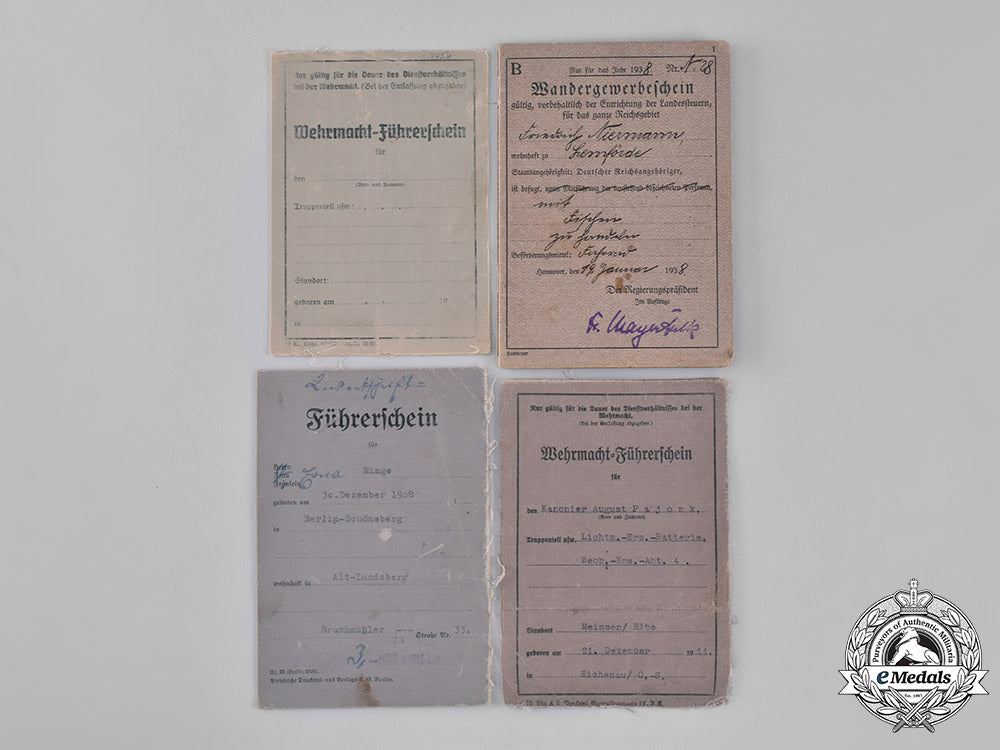 Nur gültig für die Dauer des Dienstverhältnisses
bei der Wehrmacht. (Bei der Entlassung abzugeben)
Wehrmacht-Führerschein
für
den
(Vor- und Zuname)
Truppenteil usw.:
Standort:
geboren am 19
in
1
B Nur für das Jahr 1938 Nr. N. 28
Wandergewerbeschein
gültig, vorbehaltlich der Entrichtung der Landessteuern,
für das ganze Reichsgebiet
Friedrich Niermann,
wohnhaft zu Lemförde
Staatsangehörigkeit: Deutscher Reichsangehöriger,
ist befugt, unter Mitführung der umstehend bezeichneten Personen
mit
Fischen
zu handeln
Beförderungsmittel: Fahrrad
Hannover, den 19. Januar 1938
Der Regierungspräsident
Im Auftrage
Hannover
Führerschein
für
Herrn
Frau Erna Minge
Fräulein
geboren am 30. Dezember 1908
Berlin-Schöneberg
in
wohnhaft in Alt-Landsberg
Bruchmühler --- Straße Nr. 33.
3,-
Preußische Druckerei- und Verlags-A.-G. Berlin.
Nur gültig für die Dauer des Dienstverhältnisses bei der
Wehrmacht.
(Bei der Entlassung abzugeben.)
Wehrmacht-Führerschein
für
den Kanonier August P a j o n k,
(Vor- und Zuname)
Truppenteil usw. Lichtm.-Ers.-Batterie.
Beob.-Ers.-Abt. 4.
Standort Meissen/ Elbe
geboren am 21. Dezember 19
in Eichenau/ O.-S.
Purveyors of Authentic Militaria
eMedals